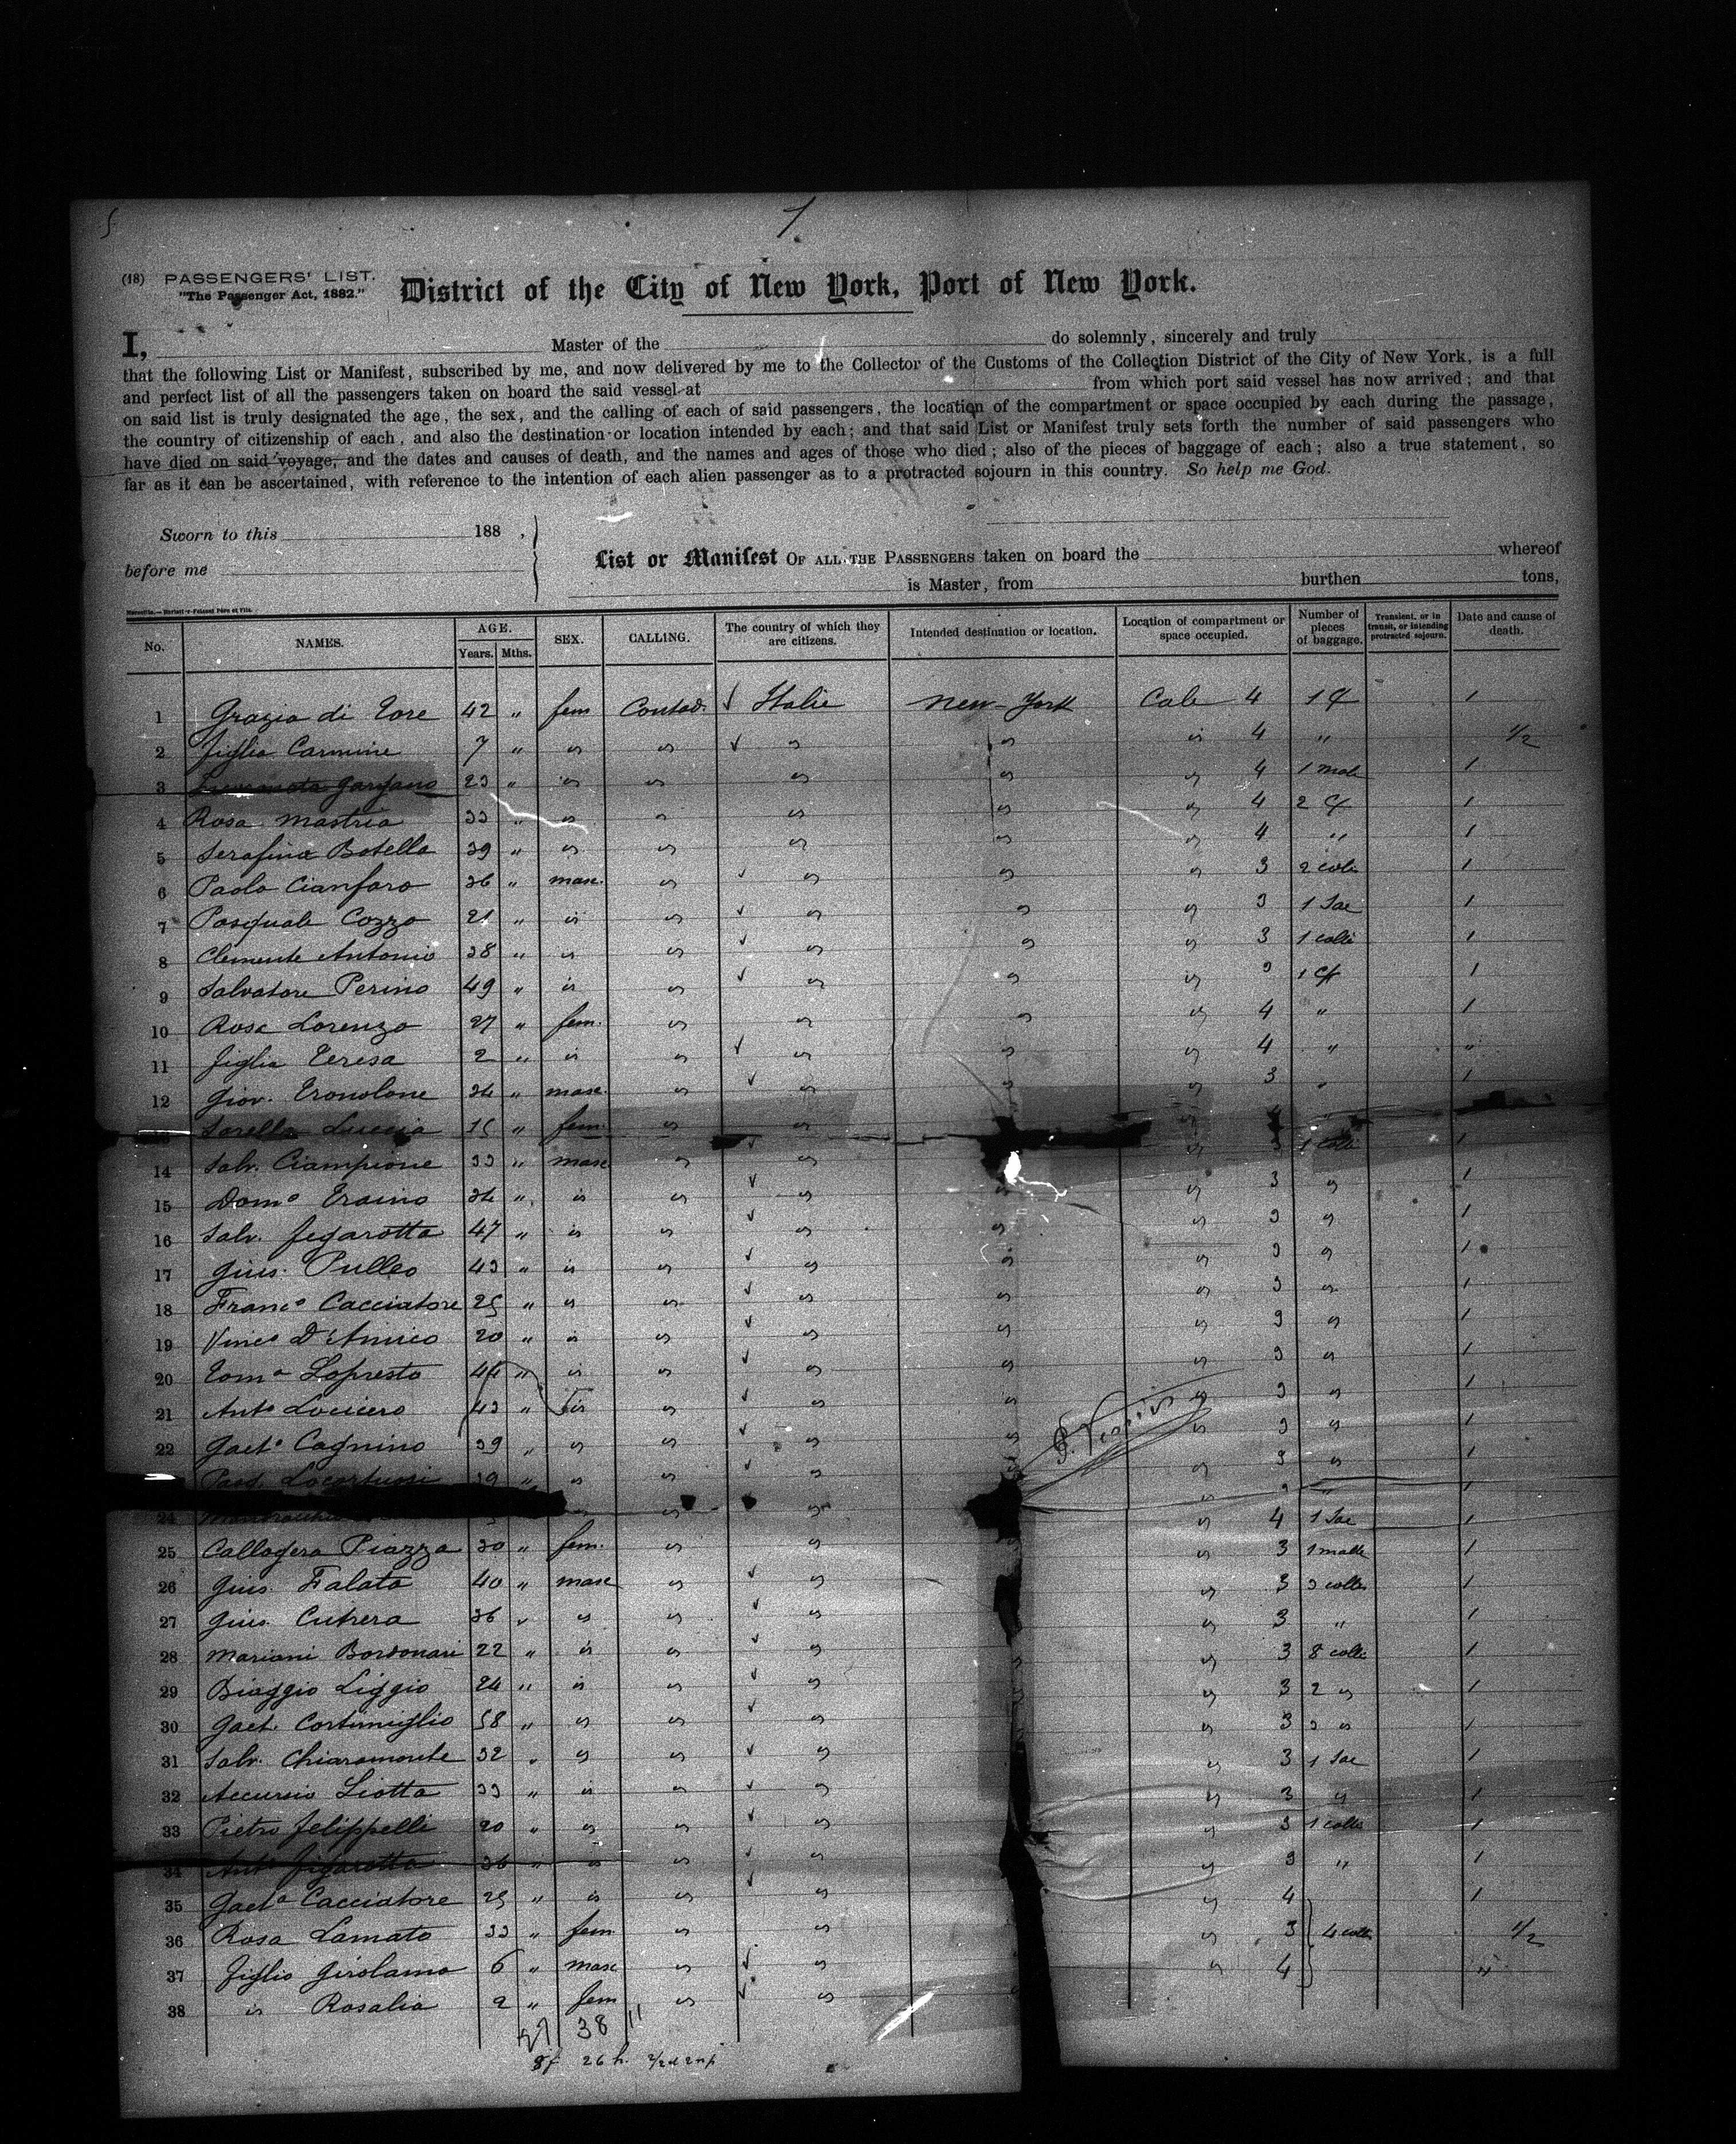 1
(18) PASSENGERS' LIST.
"The Passenger Act, 1882."
District of the City of New York, Port of New York.
I, Master of the do solemnly, sincerely and truly
that the following List or Manifest, subscribed by me, and now delivered by me to the Collector of the Customs of the Collection District of the City of New York, is a full
and perfect list of all the passengers taken on board the said vessel at from which port said vessel has now arrived; and that
on said list is truly designated the age, the sex, and the calling of each of said passengers, the location of the compartment or space occupied by each during the passage,
the country of citizenship of each, and also the destination or location intended by each; and that said List or Manifest truly sets forth the number of said passengers who
have died on said voyage, and the dates and causes of death, and the names and ages of those who died; also of the pieces of baggage of each; also a true statement, so
far as it can be ascertained, with reference to the intention of each alien passenger as to a protracted sojourn in this country. So help me God.
Sworn to this 188 ,
before me
List or Manifest OF ALL THE PASSENGERS taken on board the whereof
is Master, from burthen tons,
No. NAMES. AGE. Years. Mths. SEX. CALLING. The country of which they are citizens. Intended destination or location. Location of compartment or space occupied. Number of pieces of baggage. Transient, or in transit, or intending protracted sojourn. Date and cause of death.
1 Grazia di Tore 42 " fem Contad. Italie New-York Cale 4 1 1
2 figlia Carmine 7 " " " " " " 4 " 1/2
3 Gargano 23 " " " " " " 4 1 1
4 Rosa Mastria 33 " " " " " " 4 2 1
5 Serafina Botella 39 " " " " " " 4 " 1
6 Paolo Cianfaro 36 " masc. " " " " 3 2 colli 1
7 Pasquale Cozzo 21 " " " " " " 3 1 Sac 1
8 Clemente Antonio 38 " " " " " " 3 1 colli 1
9 Salvatore Perino 49 " " " " " " 3 1 1
10 Rosa Lorenzo 27 " fem. " " " " 4 " 1
11 figlia Teresa 2 " " " " " " 4 " "
12 Giov. Tronolone 34 " masc. " " " " 3 " 1
Sorella Luccia 15 " fem. " " " 4 "
14 Salv. Ciampione 33 " masc " " " " 3 1 colli 1
15 Domo Traino 34 " " " " " " 3 " 1
16 Salv. Figarotta 47 " " " " " " 3 " 1
17 Gius. Pulleo 43 " " " " " " 3 " 1
18 Franco Cacciatore 25 " " " " " " 3 " 1
19 Vinco D'Amico 20 " " " " " " 3 " 1
20 Toma Lopresto 44 " " " " " " 3 " 1
21 Anto Locicero 43 " " " " " " 3 " 1
22 Gaeto Cagnino 39 " " " " " " 3 " 1
Pasq. 39 " " " " " " 3 " 1
24 " " " " 3 " 1
25 Callogera Piazza 30 " fem. " " " 4 1 Sac 1
26 Gius. Falata 40 " masc " " " 3 1 malle 1
27 Gius. Cutrera 36 " " " " " 3 3 colli 1
28 Mariani Bordonari 22 " " " " " 3 " 1
29 Biaggio Liggio 24 " " " " " 3 8 colli 1
30 Gaet. Cortimiglio 58 " " " " " 3 2 " 1
31 Salv. Chiaramonte 32 " " " " " 3 3 " 1
32 Accursio Liotta 33 " " " " " 3 1 Sac 1
33 Pietro Felippelli 20 " " " " " 3 " 1
34 Anto Figarotta 36 " " " " " 3 1 colli 1
35 Gaeta Cacciatore 25 " " " " " 3 " 1
36 Rosa Lamato 33 " fem " " " 4 1
37 figlio Girolamo 6 " masc " " " 3 4 colli 1/2
38 " Rosalia 2 " fem " " " 4 "
38 11
26 h.